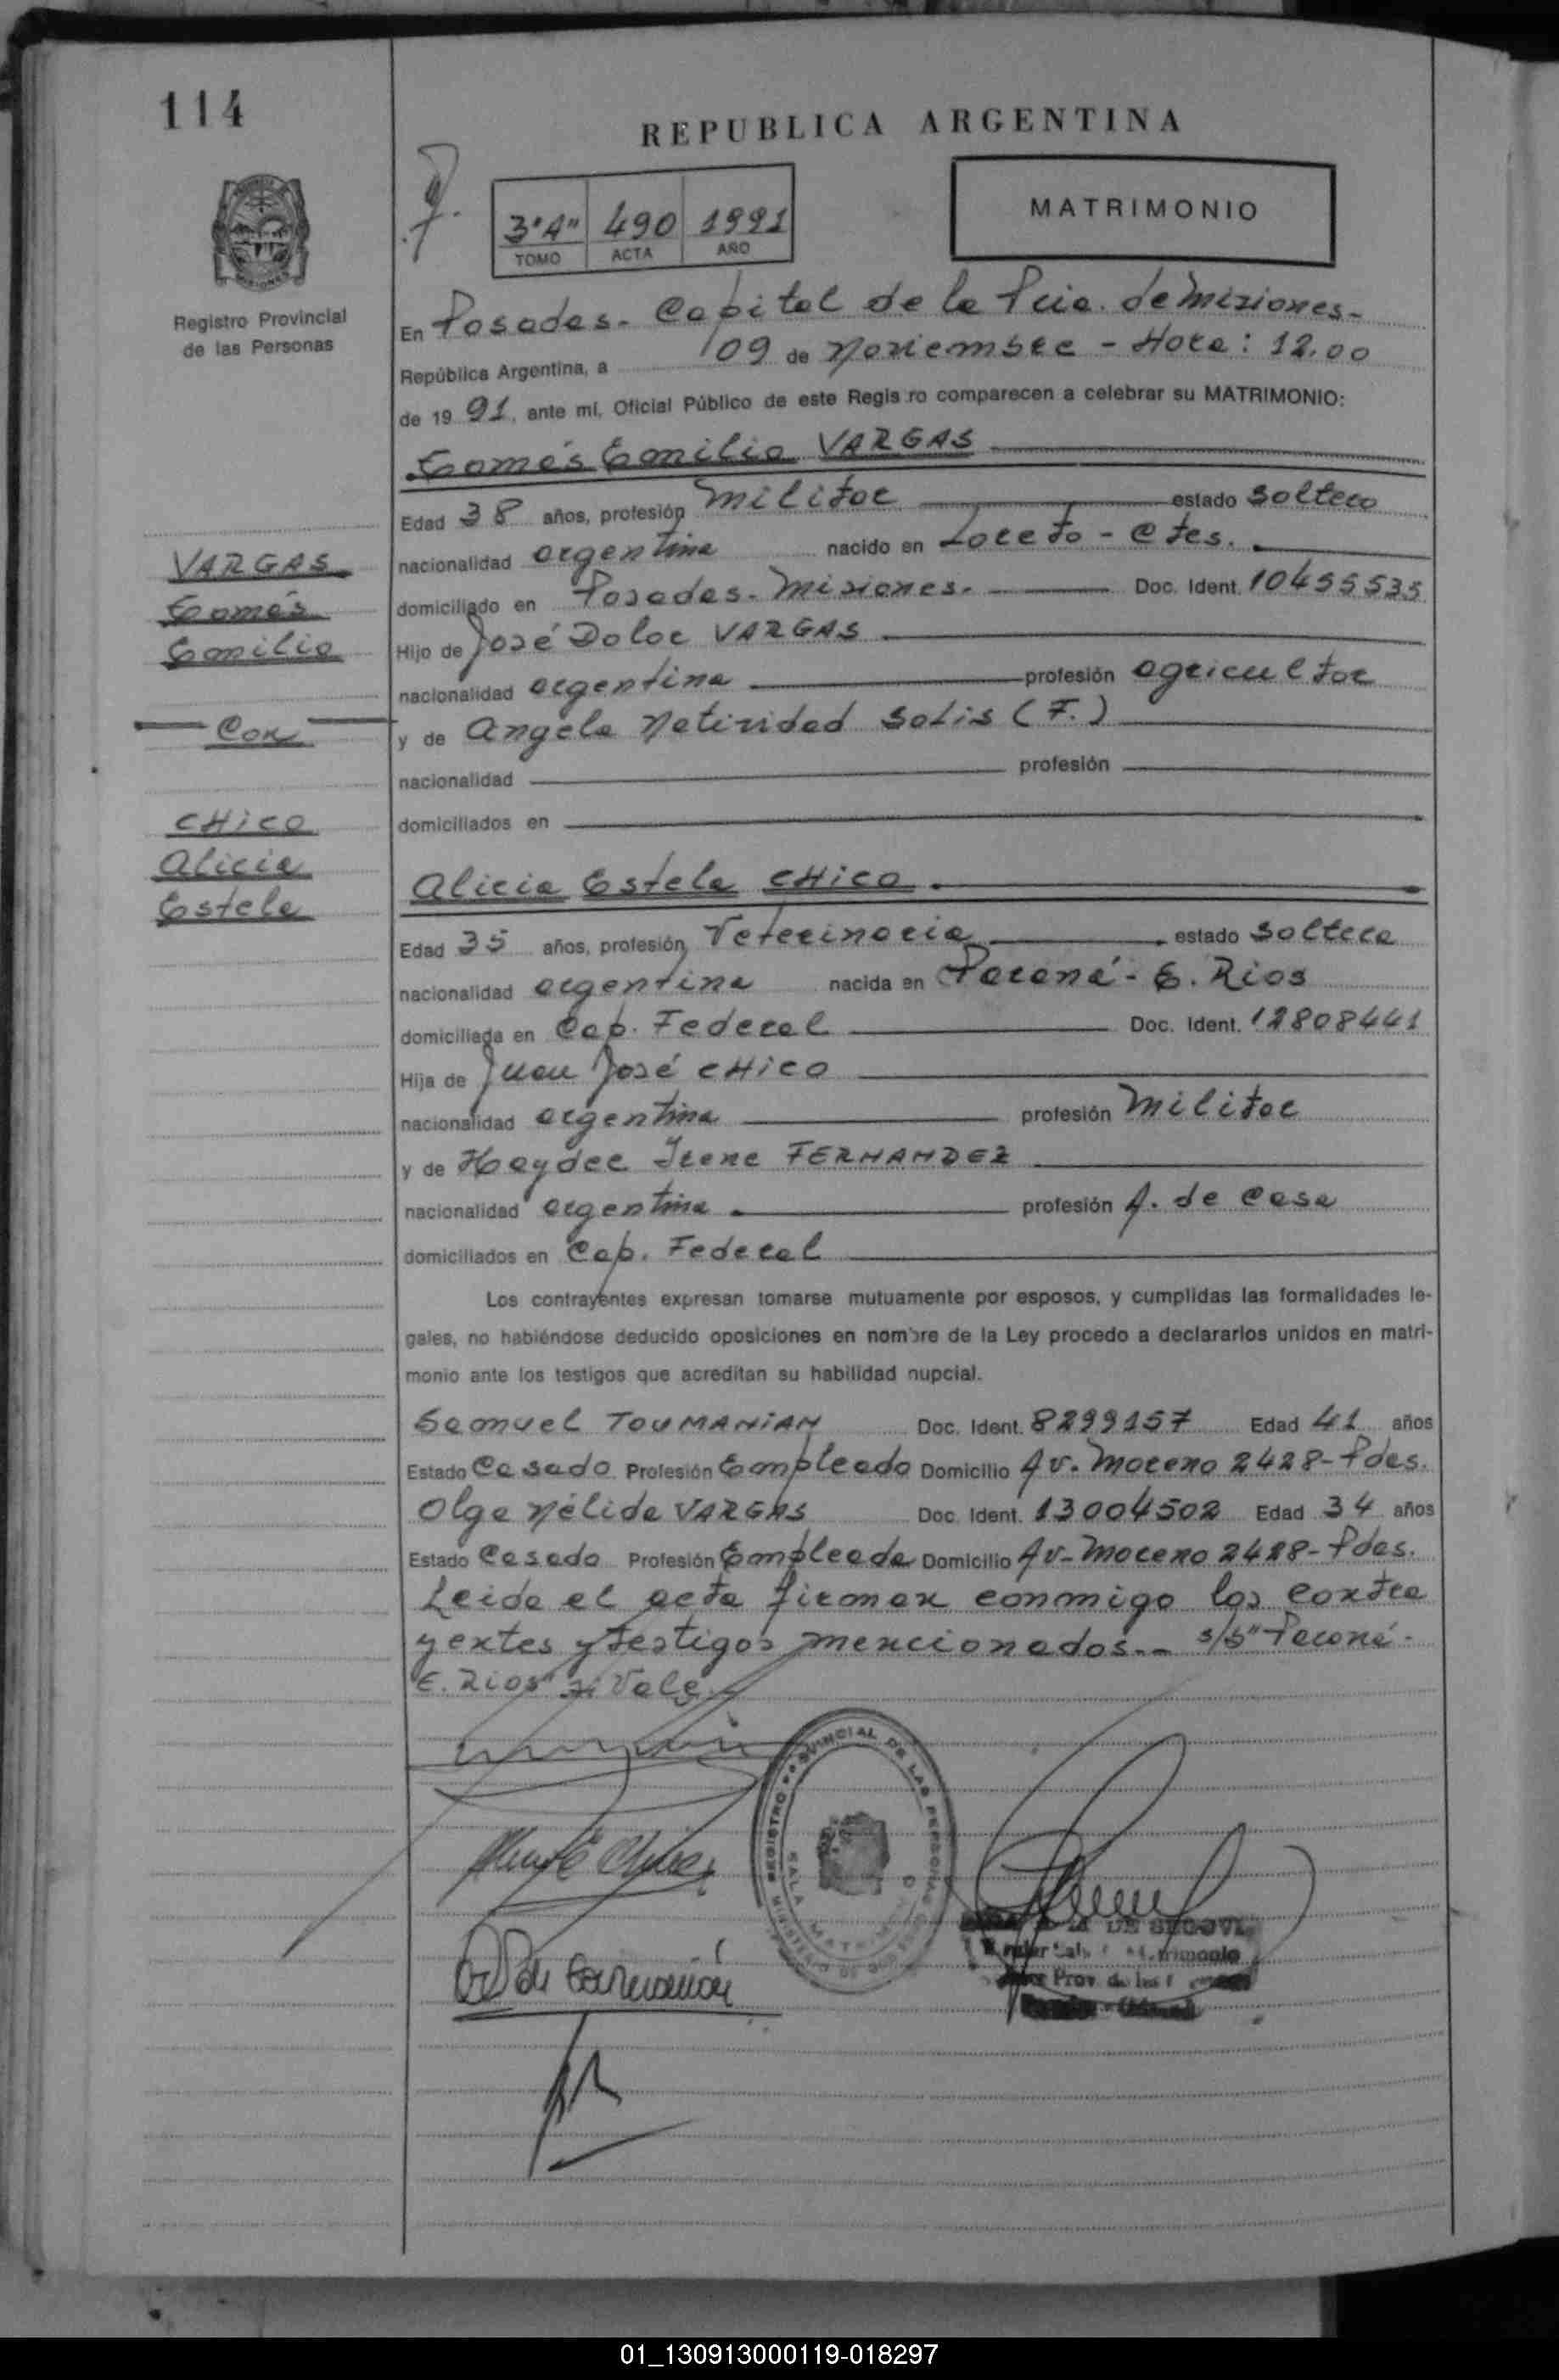 114
REPUBLICA ARGENTINA
MATRIMONIO
3º "A" 490 1991
TOMO ACTA AÑO
Registro Provincial
de las Personas
En Posadas - Capital de la Pcia. de Misiones -
República Argentina, a 09 de Noviembre - Hora: 12.00
de 19 91, ante mí, Oficial Público de este Registro comparecen a celebrar su MATRIMONIO:
Tomás Emilio VARGAS
Edad 38 años, profesión Militar estado soltero
nacionalidad argentina nacido en Loreto - Ctes.
domiciliado en Posadas - Misiones. Doc. Ident. 10455535
Hijo de José Dolor VARGAS
nacionalidad argentina profesión agricultor
y de Angela Natividad SOLIS (F.)
nacionalidad profesión
domiciliados en
VARGAS
Tomás
Emilio
Con
CHICO
Alicia
Estela
Alicia Estela CHICO
Edad 35 años, profesión Veterinaria estado soltera
nacionalidad argentina nacida en Paraná - E. Rios
domiciliada en Cap. Federal Doc. Ident. 12808441
Hija de Juan José CHICO
nacionalidad argentina profesión Militar
y de Haydee Irene FERNANDEZ
nacionalidad argentina profesión A. de Casa
domiciliados en Cap. Federal
Los contrayentes expresan tomarse mutuamente por esposos, y cumplidas las formalidades le-
gales, no habiéndose deducido oposiciones en nombre de la Ley procedo a declararlos unidos en matri-
monio ante los testigos que acreditan su habilidad nupcial.
Samuel TOUMANIAN Doc. Ident. 8299157 Edad 41 años
Estado Casado Profesión Empleado Domicilio Av. Moreno 2428 - Pdas.
Olga Nélida VARGAS Doc. Ident. 13004502 Edad 34 años
Estado Casada Profesión Empleada Domicilio Av - Moreno 2428 - Pdas.
Leida el acta firman conmigo los contra
yentes y testigos mencionados.- s/b "Paraná -
E. Rios" Vale
REGISTRO PROVINCIAL DE LAS PERSONAS
SALA MATRIMONIO
MINISTERIO DE GOBIERNO
DE SEGOVIA
01_130913000119-018297